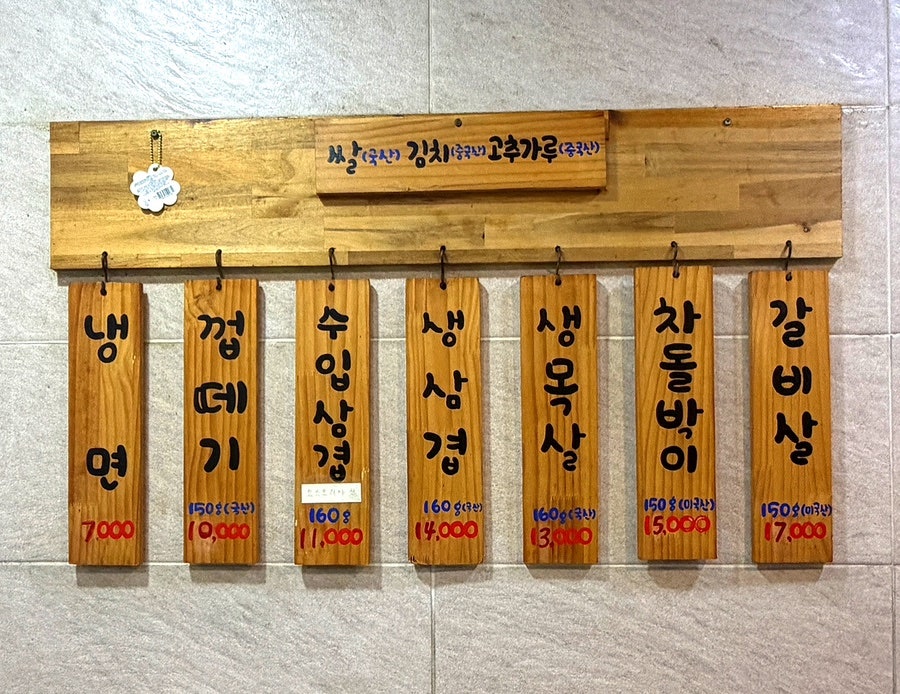 쌀(국산) 김치(중국산) 고추가루(중국산)
냉면
7,000
껍데기
150g(국산)
10,000
수입삼겹
160g
11,000
생삼겹
160g(국산)
14,000
생목살
160g(국산)
13,000
차돌박이
150g(미국산)
15,000
갈비살
150g(미국산)
17,000